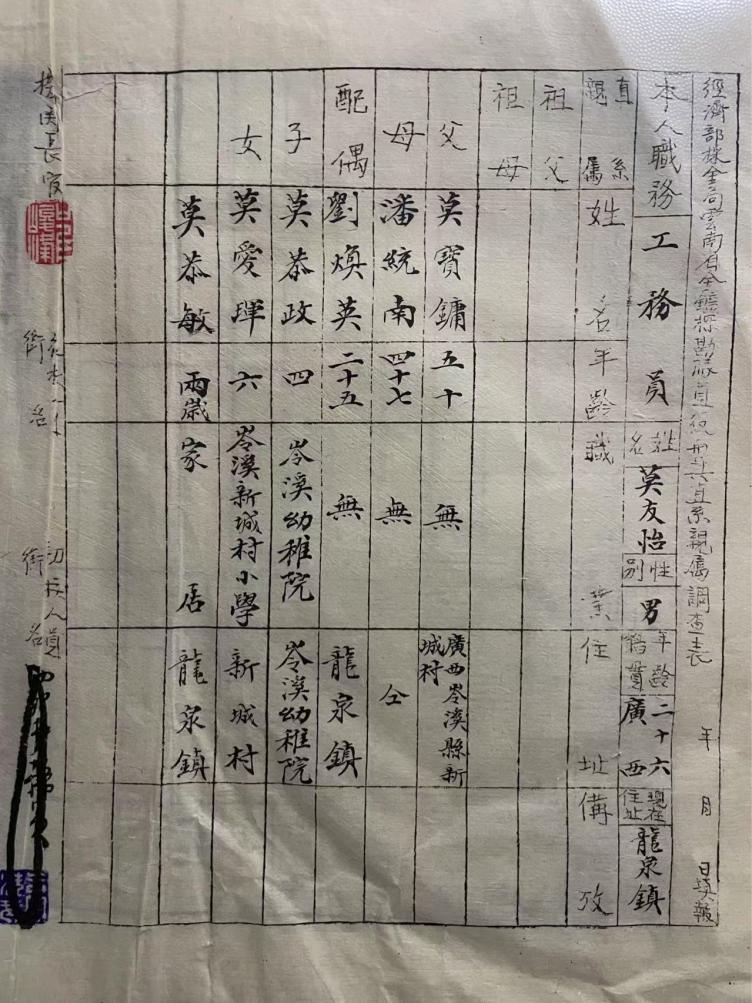 經濟部採金局雲南省金鑛探勘隊員役兵直系親屬調查表 年 月 日填報
本人職務 工務員 姓名 莫友怡 性別 男 年齡籍貫 二十六 廣西 現在住址 龍泉鎮
直系親屬 姓名 年齡 職業 住址 備攷
祖父
祖母
父 莫寶鏞 五十 無 廣西岑溪縣新城村
母 潘統南 四十七 無 仝
配偶 劉煥英 二十五 無 龍泉鎮
子 莫恭政 四 岑溪幼稚院 岑溪幼稚院
女 莫愛琿 六 岑溪新城村小學 新城村
莫恭敏 兩歲 家居 龍泉鎮
銜名
銜名